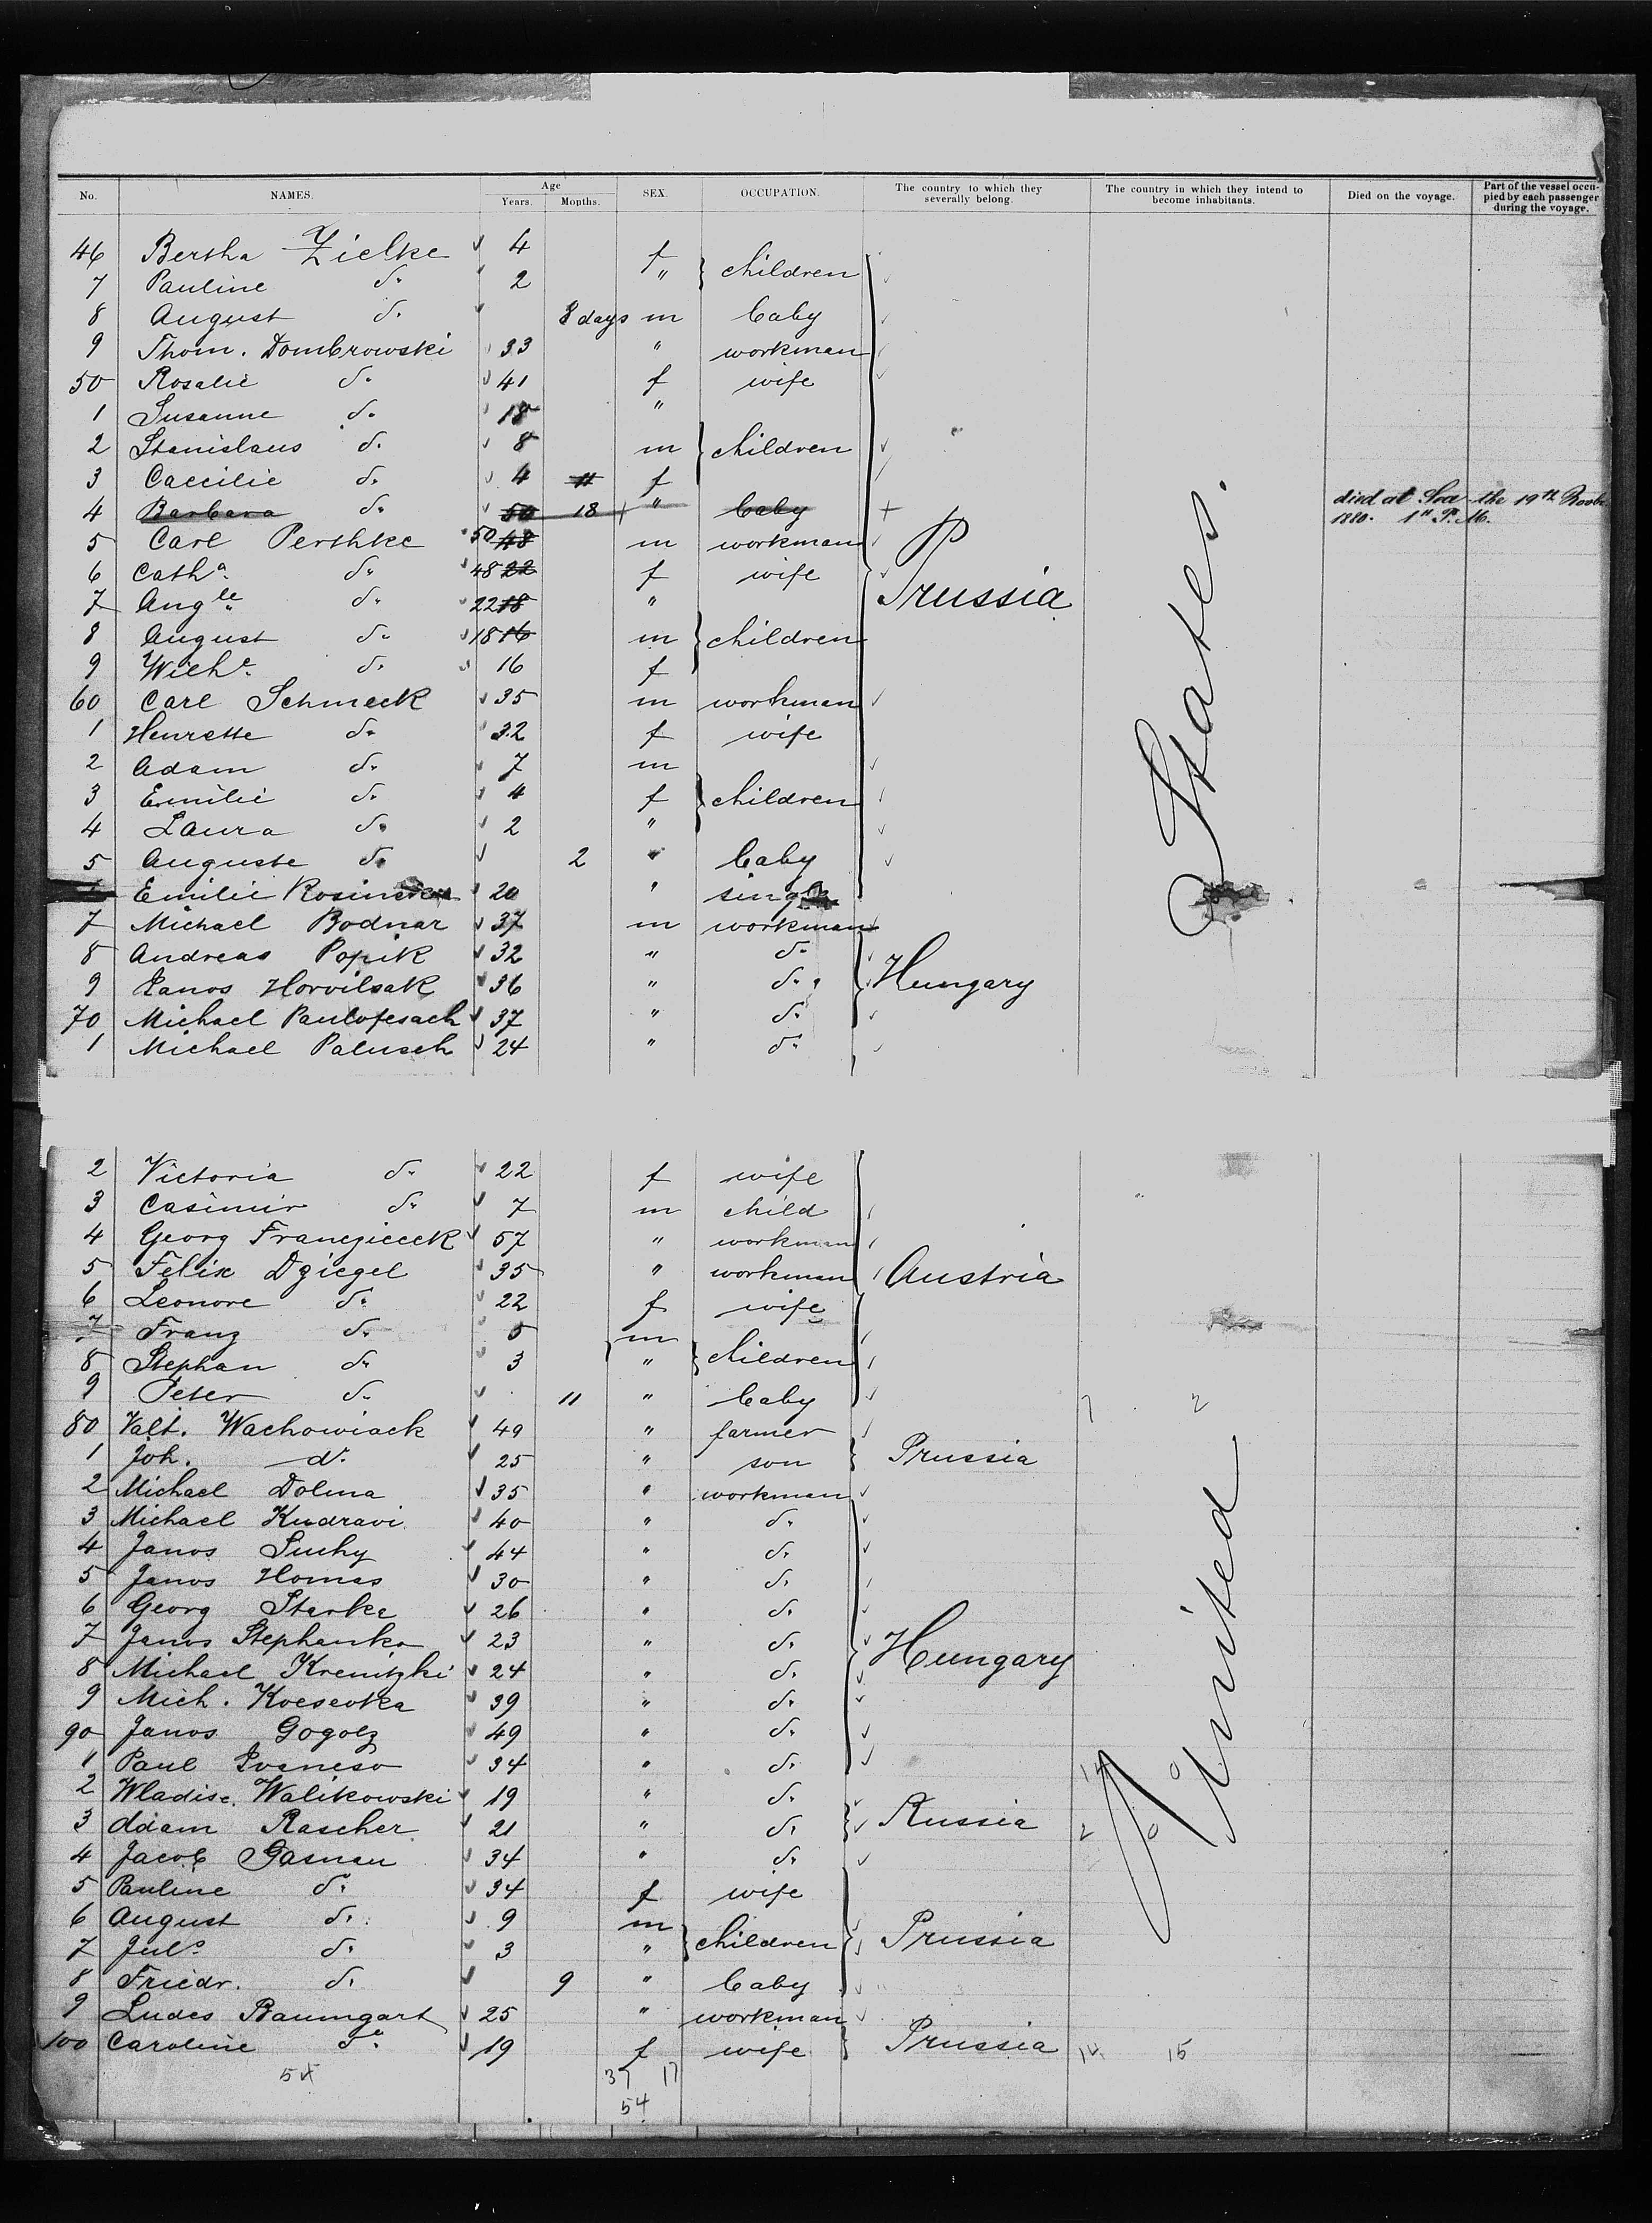 No. NAMES. Age Years. Months. SEX. OCCUPATION. The country to which they severally belong. The country in which they intend to become inhabitants. Died on the voyage. Part of the vessel occupied by each passenger during the voyage.
46 Bertha Zielke 4 f
7 Pauline do. 2 " } children
8 August do. 8 days m baby
9 Thom. Dombrowski 33 " workman
50 Rosalie do. 41 f wife
1 Susanne do. 18 "
2 Stanislaus do. 8 m } children
3 Caecilie do. 4 11 f
4 Barbara do. 50 18 " baby + died at Sea the 19th Novbr 1880. 1h P.M.
5 Carl Pershke 50 48 m workman
6 Catha. do. 48 22 f wife Prussia
7 Angle. do. 22 18 "
8 August do. 18 16 m } children
9 Wilhe. do. 16 f
60 Carl Schmeck 35 m workman
1 Henrette do. 32 f wife
2 Adam do. 7 m
3 Emilie do. 4 f } children
4 Laura do. 2 "
5 Auguste do. 2 " baby
Emilie 20 " single
7 Michael Bodnar 37 m workman
8 Andreas Popik 32 " do.
9 Janos Horvilsak 36 " do. Hungary
70 Michael Paulofesach 37 " do.
1 Michael Palusch 24 " do.
2 Victoria do. 22 f wife
3 Casimir do. 7 m child
4 Georg Franczieck 57 " workman
5 Felix Dziegel 35 " workman Austria
6 Leonore do. 22 f wife
7 Franz do. 5 m
8 Stephan do. 3 " } children
9 Peter do. 11 " baby 7 2
80 Valt. Wachowiack 49 " farmer
1 Joh. do. 25 " son } Prussia
2 Michael Dolina 35 " workman
3 Michael Kudravi 40 " do.
4 Janos Suchy 44 " do.
5 Janos Homas 30 " do.
6 Georg Starke 26 " do.
7 Janos Stephanko 23 " do. Hungary
8 Michael Krenitzki 24 " do.
9 Mich. Kocsevka 39 " do.
90 Janos Gogolz 49 " do.
1 Paul Ivaneso 34 " do. 14 0
2 Wladisc. Walikowski 19 " do.
3 Adam Rascher 21 " do. } Russia 2 0
4 Jacob Gasnau 34 " do.
5 Pauline do. 34 f wife
6 August do. 9 m
7 Juls. do. 3 " } children } Prussia
8 Friedr. do. 9 " baby
9 Ludes Baumgart 25 " workman
100 Caroline do. 19 f wife } Prussia 14 15
54 37 17
54
United States.